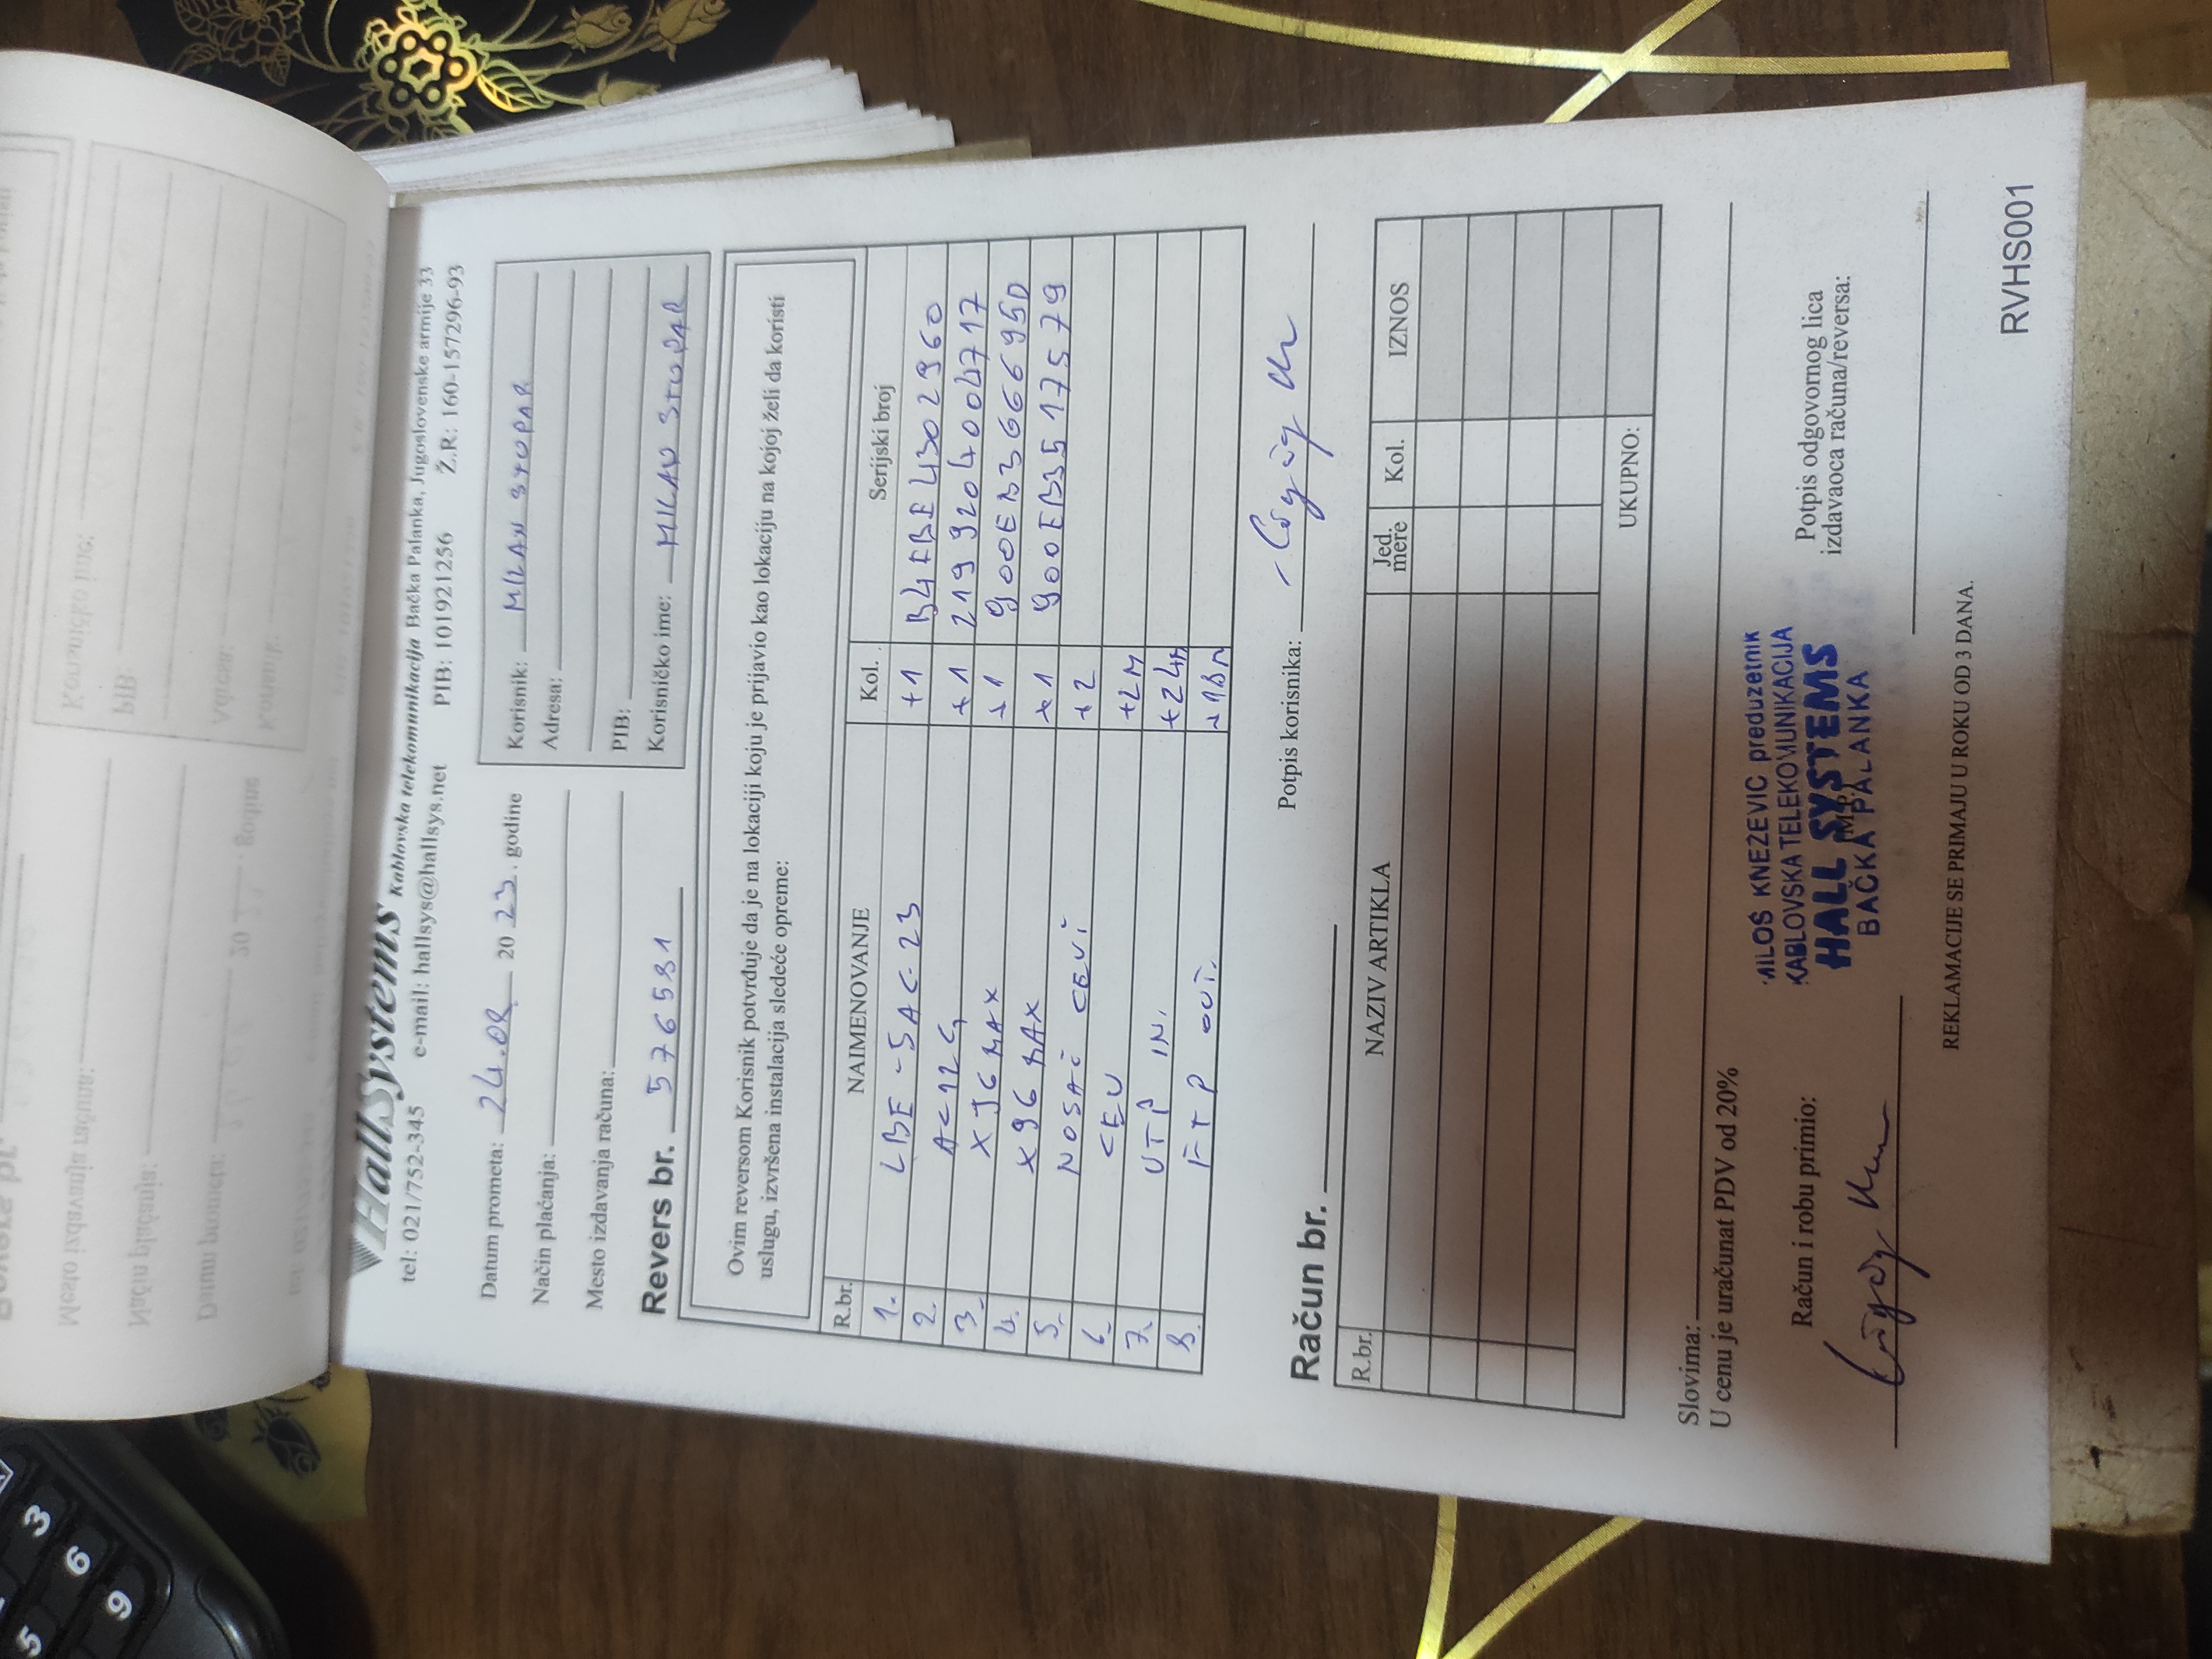 HallSystems Kablovska telekomunikacija Bačka Palanka, Jugoslovenske armije 33
tel: 021/7752-345 e-mail: hallsys@hallsys.net PIB: 101921256 Ž.R: 160-157296-93
Datum prometa: 24.08. 2023. godine
Način plaćanja:
Mesto izdavanja računa:
Revers br. 5765981
Korisnik: MILAN STUPAR
Adresa:
PIB:
Korisničko ime: MILAN STUPAR
Ovim reversom Korisnik potvrđuje da je na lokaciji koju je prijavio kao lokaciju na kojoj želi da koristi
uslugu, izvršena instalacija sledeće opreme:
R.br. NAIMENOVANJE Kol. Serijski broj
1. LBE-5AC-23 +1 B4FBE4302960
2. AC12G +1 2199204004717
3. X96 MAX +1 900EB366695D
4. X96 MAX +1 900EB35517579
5. NOSAČ CEVI +2
6. CEV +2M
7. UTP IN. +24M
8. FTP OUT. +18M
Potpis korisnika:
Račun br.
R.br. NAZIV ARTIKLA Jed. mere Kol. IZNOS
UKUPNO:
Slovima:
U cenu je uračunat PDV od 20%
Račun i robu primio:
MILOŠ KNEZEVIC preduzetnik
KABLOVSKA TELEKOMUNIKACIJA
HALL SYSTEMS
M.P.
BAČKA PALANKA
Potpis odgovornog lica
izdavaoca računa/reversa:
REKLAMACIJE SE PRIMAJU U ROKU OD 3 DANA.
RVHS001
3
6
5
9